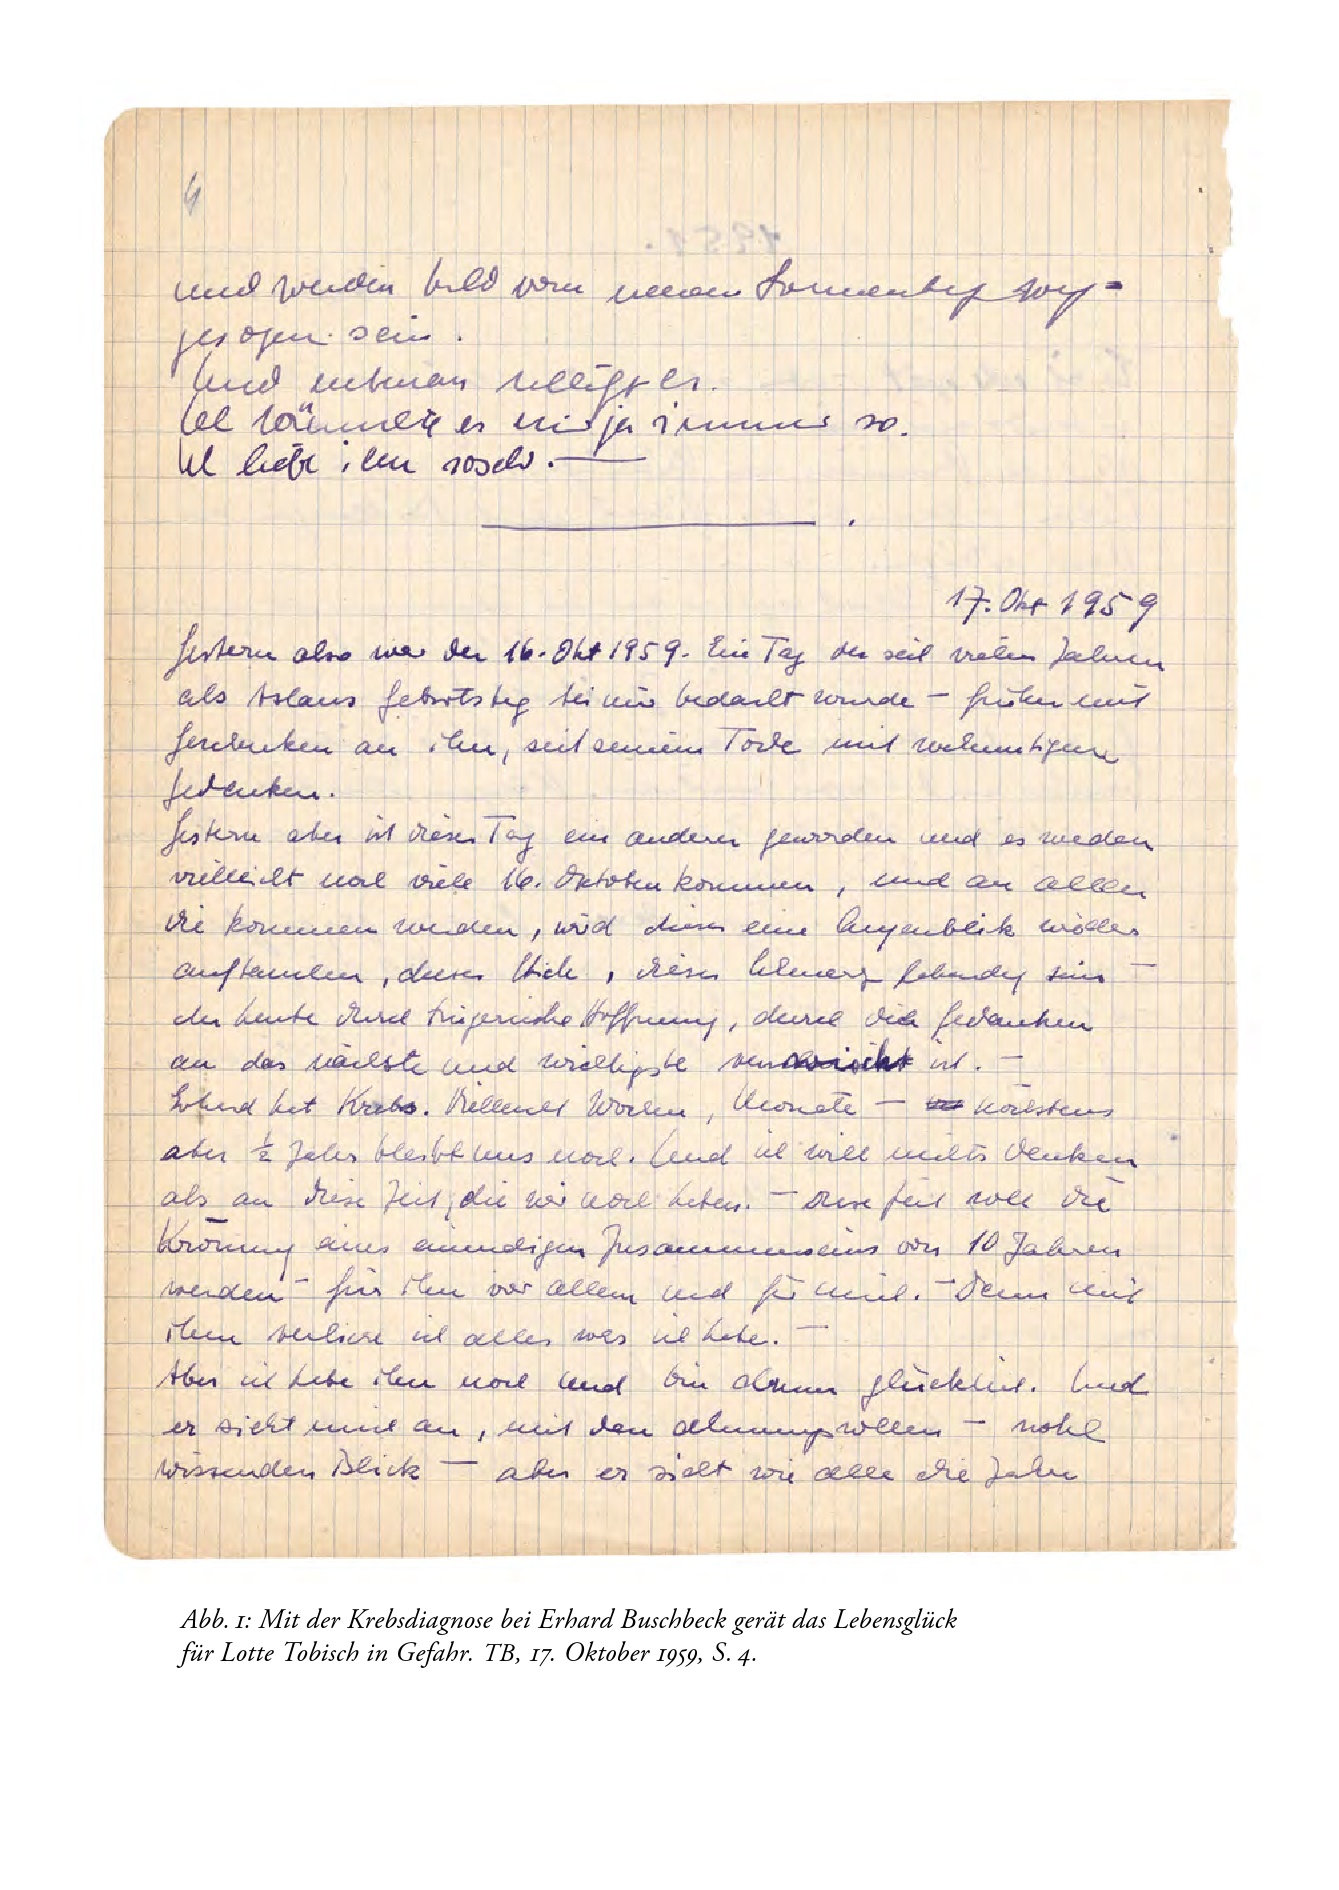 4
und werden bald vom neuen Sonnentag weg-
gesogen sein.
Und nebenan
Ich es mir ja immer so.
Ich liebe ihn so sehr. —
17. Okt 1959
Gestern also war der 16. Okt 1959. Ein Tag der seit vielen Jahren
als Aslans Geburtstag bei mir bedacht wurde – früher mit
Geschenken an ihn, seit seinem Tode mit wehmutigem
Gedenken.
Gestern aber ist dieser Tag ein anderer geworden und es werden
vielleicht noch viele 16. Oktober kommen, und an allen
die kommen werden, wird dieser eine Augenblick wieder
auftauchen, dieser Stich, dieser Schmerz lebendig sein –
der heute durch trügerische Hoffnung, durch die Gedanken
an das nächste und wichtigste verwischt ist. –
Erhard hat Krebs. Vielleicht Wochen, Monate – höchstens
aber ½ Jahr bleibt uns noch. Und ich will nichts denken
als an diese Zeit, die wir noch haben. – diese Zeit soll die
Krönung eines Zusammenseins von 10 Jahren
werden – für ihn vor allem und für mich. – Denn mit
ihm verliere ich alles was ich habe. –
Aber ich habe ihn noch und bin drum glücklich. Und
er sieht mich an, mit den ahnungsvollen – wohl
wissenden Blick – aber er sieht wie alle die Jahre
Abb. 1: Mit der Krebsdiagnose bei Erhard Buschbeck gerät das Lebensglück
für Lotte Tobisch in Gefahr. TB, 17. Oktober 1959, S. 4.